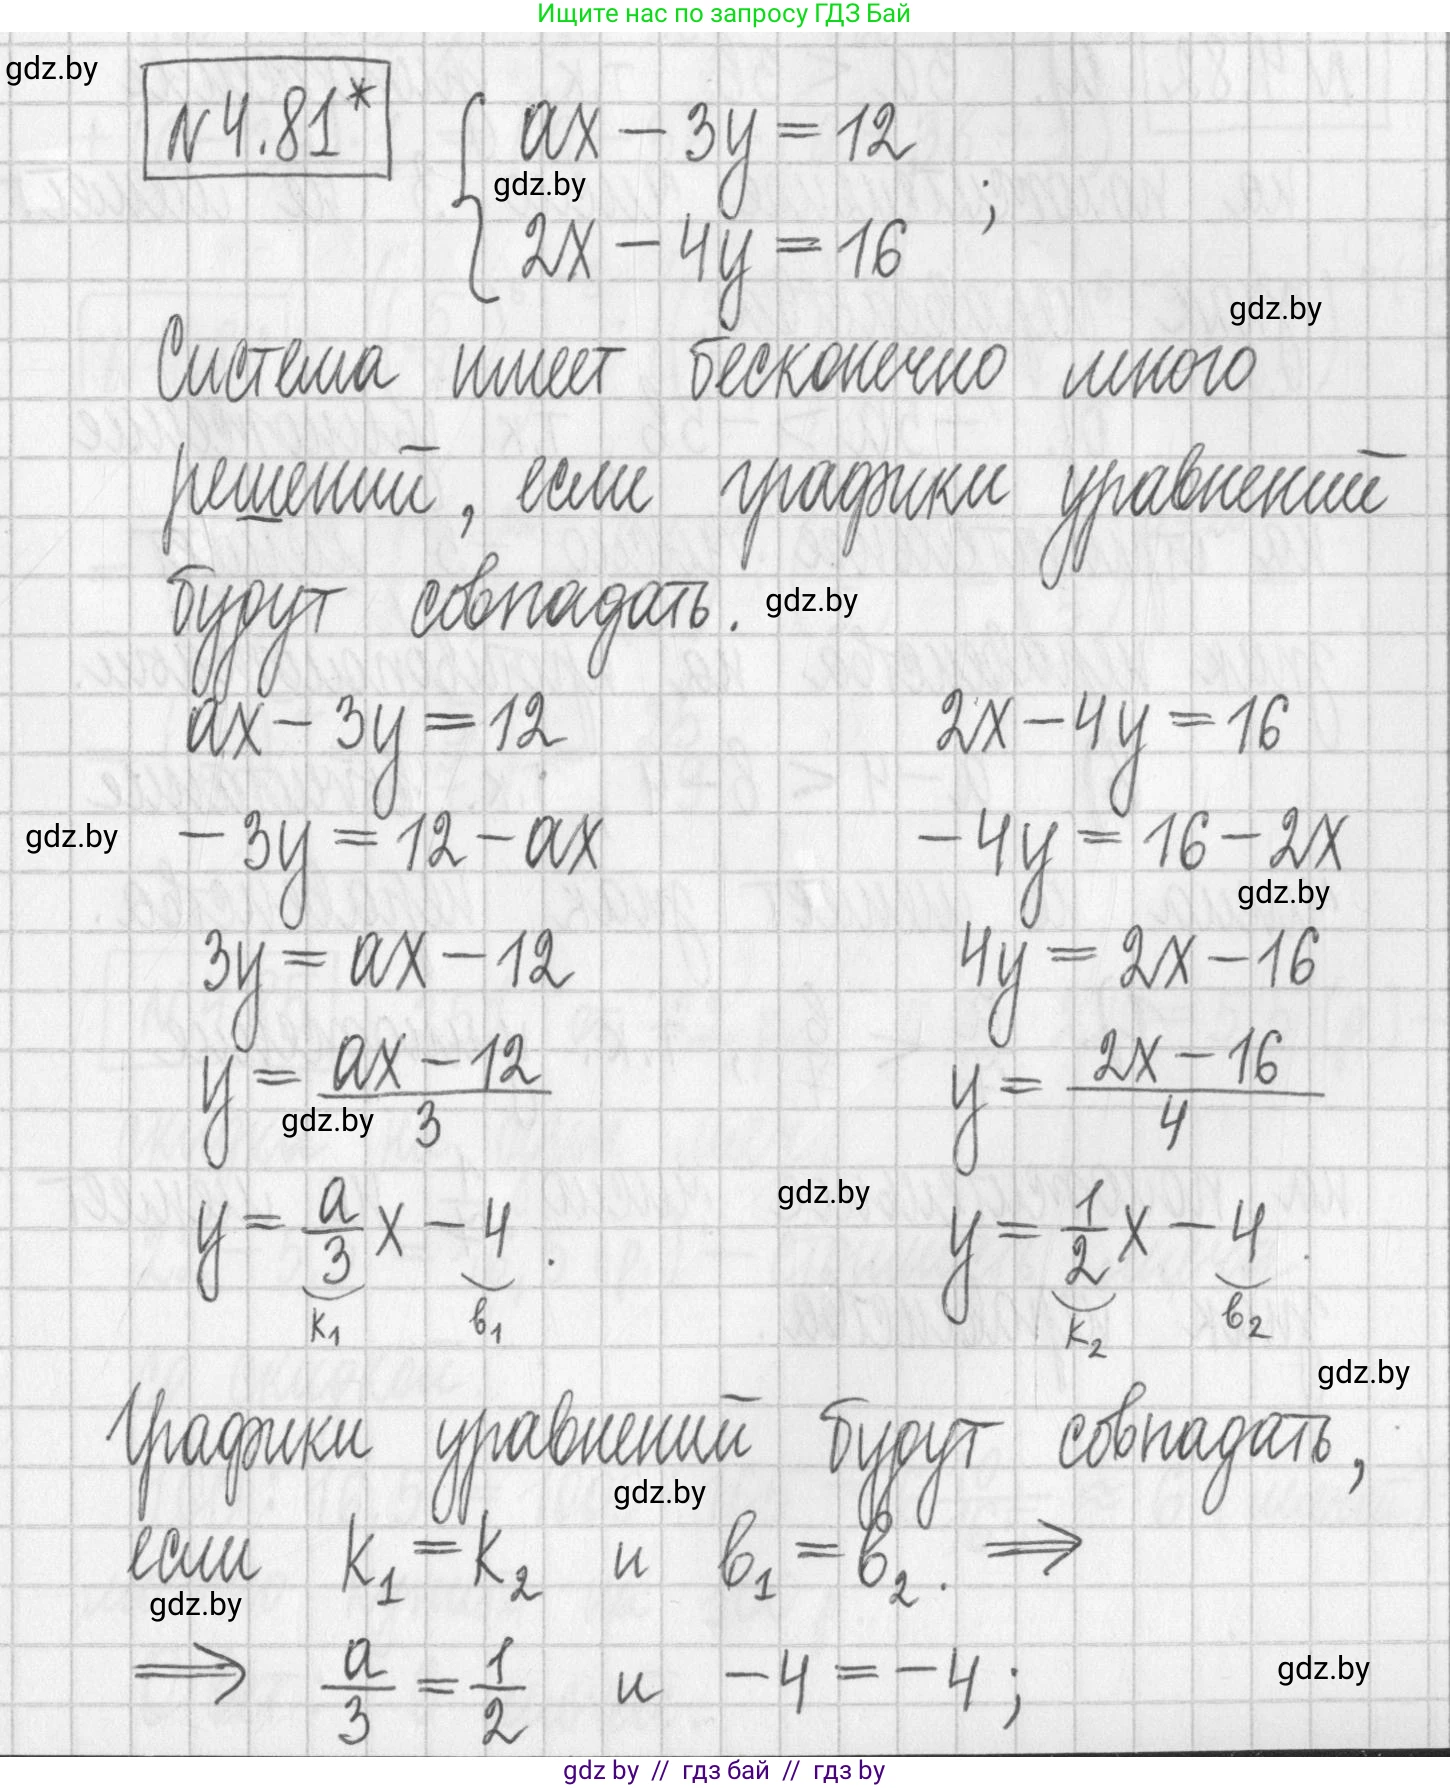 Ищите нас по запросу ГДЗ Бай
gdz.by
№4.81*
{ ax − 3y = 12
gdz.by
2x − 4y = 16 ;
gdz.by
Система имеет бесконечно много
решений, если графики уравнений
будут совпадать.
gdz.by
ax − 3y = 12 2x − 4y = 16
gdz.by
− 3y = 12 − ax − 4y = 16 − 2x
gdz.by
3y = ax − 12 4y = 2x − 16
y = (ax − 12)/3 y = (2x − 16)/4
gdz.by
gdz.by
y = a/3 x − 4. y = 1/2 x − 4.
k₁ в₁ k₂ в₂
gdz.by
Графики уравнений будут совпадать,
gdz.by
если k₁ = k₂ и в₁ = в₂. ⟹
gdz.by
⟹ a/3 = 1/2 и −4 = −4;
gdz.by
gdz by // гдз бай // гдз by